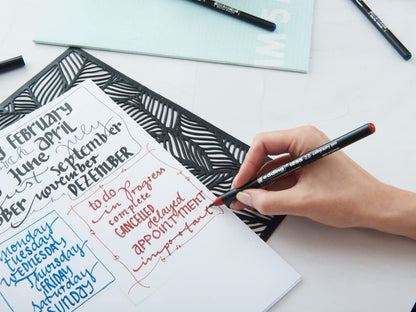 FEBRUARY
June april July
September
October november
DEZEMBER
monday
TUESDAY
WEDNESDAY
Thursday
FRIDAY
Saturday
SUNDAY
to do in progress
complete
CANCELLED delayed
APPOINTMENT
important
edding 1255